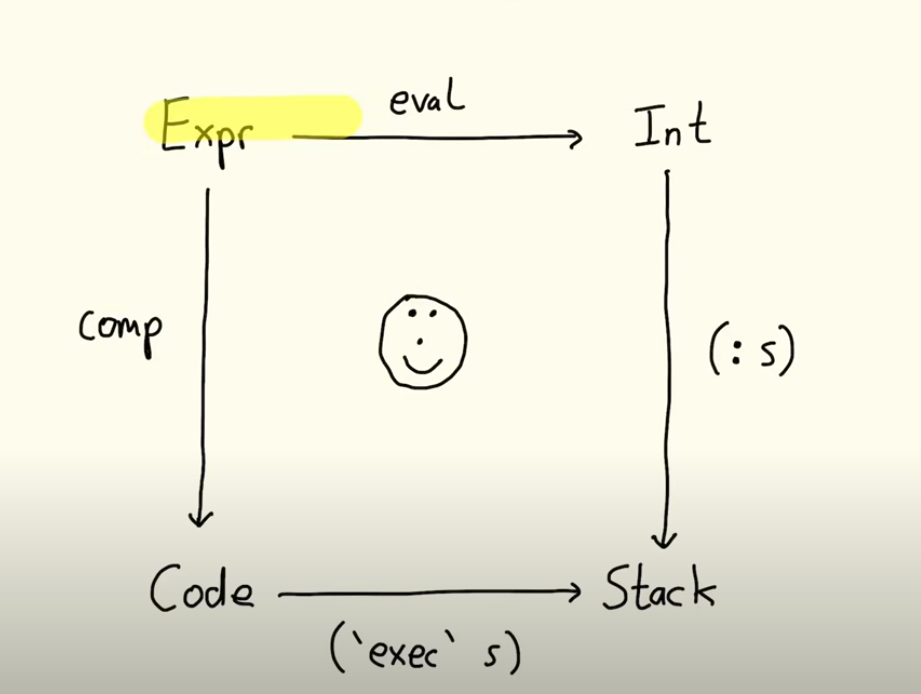 eval
Expr
Int
comp
(: s)
Code
Stack
(`exec` s)